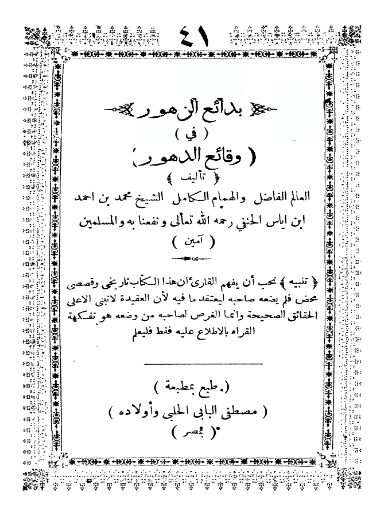 ٤١
بدائع الزهور
( في )
( وقائع الدهور )
﴿ تأليف ﴾
العالم الفاضل والهمام الكامل الشيخ محمد بن احمد
ابن اياس الحنفي رحمه الله تعالى ونفعنا به والمسلمين
( آمين )
﴿ تنبيه ﴾ يجب أن يفهم القارىء ان هذا الكتاب تاريخى وقصصى
محض فلم يضعه صاحبه ليعتقد ما فيه لأن العقيدة لا تبنى الا على
الحقائق الصحيحة وانما الغرض لصاحبه من وضعه هو تفكهة
القراء بالاطلاع عليه فقط فليعلم
( طبع بمطبعة )
( مصطفى البابى الحلبى وأولاده )
( بمصر )